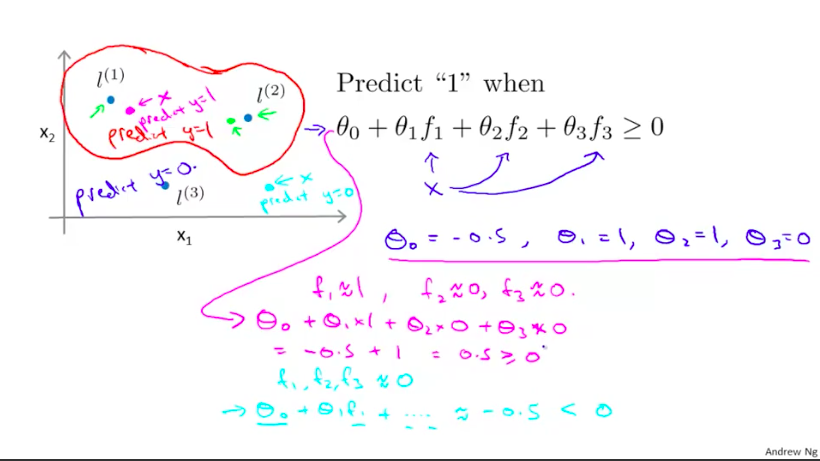 l^(1)
l^(2)
← x
predict y=1
predict y=1
x₂
predict y=0.
l^(3)
← x
predict y=0
x₁
Predict “1” when
→ θ₀ + θ₁f₁ + θ₂f₂ + θ₃f₃ ≥ 0
x
θ₀ = -0.5, θ₁ = 1, θ₂ = 1, θ₃ = 0
f₁ ≈ 1, f₂ ≈ 0, f₃ ≈ 0.
→ θ₀ + θ₁ × 1 + θ₂ × 0 + θ₃ × 0
= -0.5 + 1 = 0.5 ≥ 0
f₁, f₂, f₃ ≈ 0
→ θ₀ + θ₁f₁ + .... ≈ -0.5 < 0
Andrew Ng